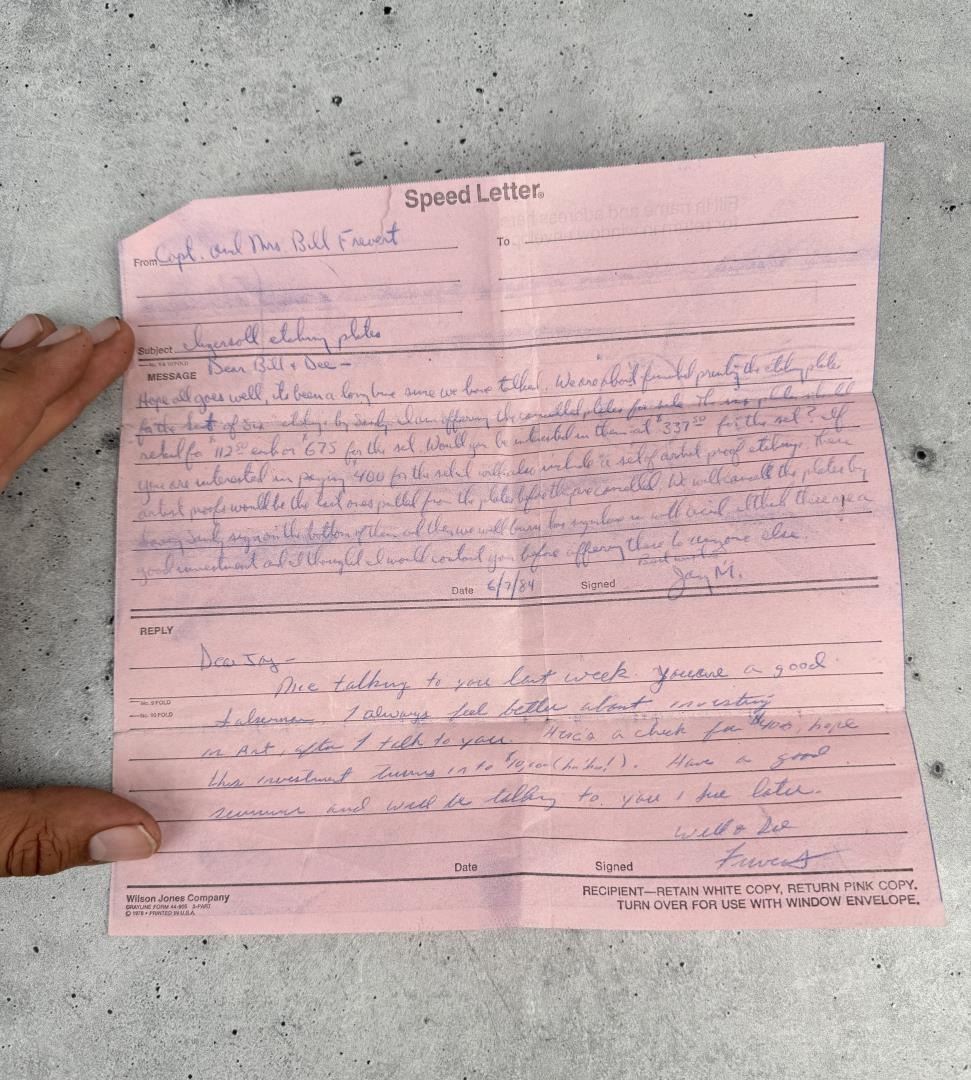 Speed Letter®
From Capt. and Mrs. Bill Frevert
To
Subject Ingersoll etching plates
MESSAGE Dear Bill + Dee -
Hope all goes well, its been a long time since we have talked. We are about finished printing the etching plates
for the last of six etchings by Sandy. I am offering the cancelled plates for sale. The six plates should
retail for $112.50 each or $675 for the set. Would you be interested in them at $337.50 for the set? If
you are interested in paying $400 for the set I will also include a set of artist proof etchings. These
artist proofs would be the last ones pulled from the plates before they are cancelled. We will cancel the plates by
having Sandy sign on the bottom of them and then we will burn his signature in with acid. I think these are a
good investment and I thought I would contact you before offering these to anyone else.
Date 6/7/84 Signed Jay M.
REPLY
Dear Jay -
Nice talking to you last week. You are a good
salesman, I always feel better about investing
in Art, after I talk to you. Here's a check for $400, hope
this investment turns into $10,000 (ho ho!). Have a good
summer and will be talking to you later.
Will + Dee
Frevert
Date Signed
No. 9 FOLD
No. 10 FOLD
Wilson Jones Company
GRAYLINE FORM 44-905 3-PART
© 1978 • PRINTED IN U.S.A.
RECIPIENT—RETAIN WHITE COPY, RETURN PINK COPY.
TURN OVER FOR USE WITH WINDOW ENVELOPE.